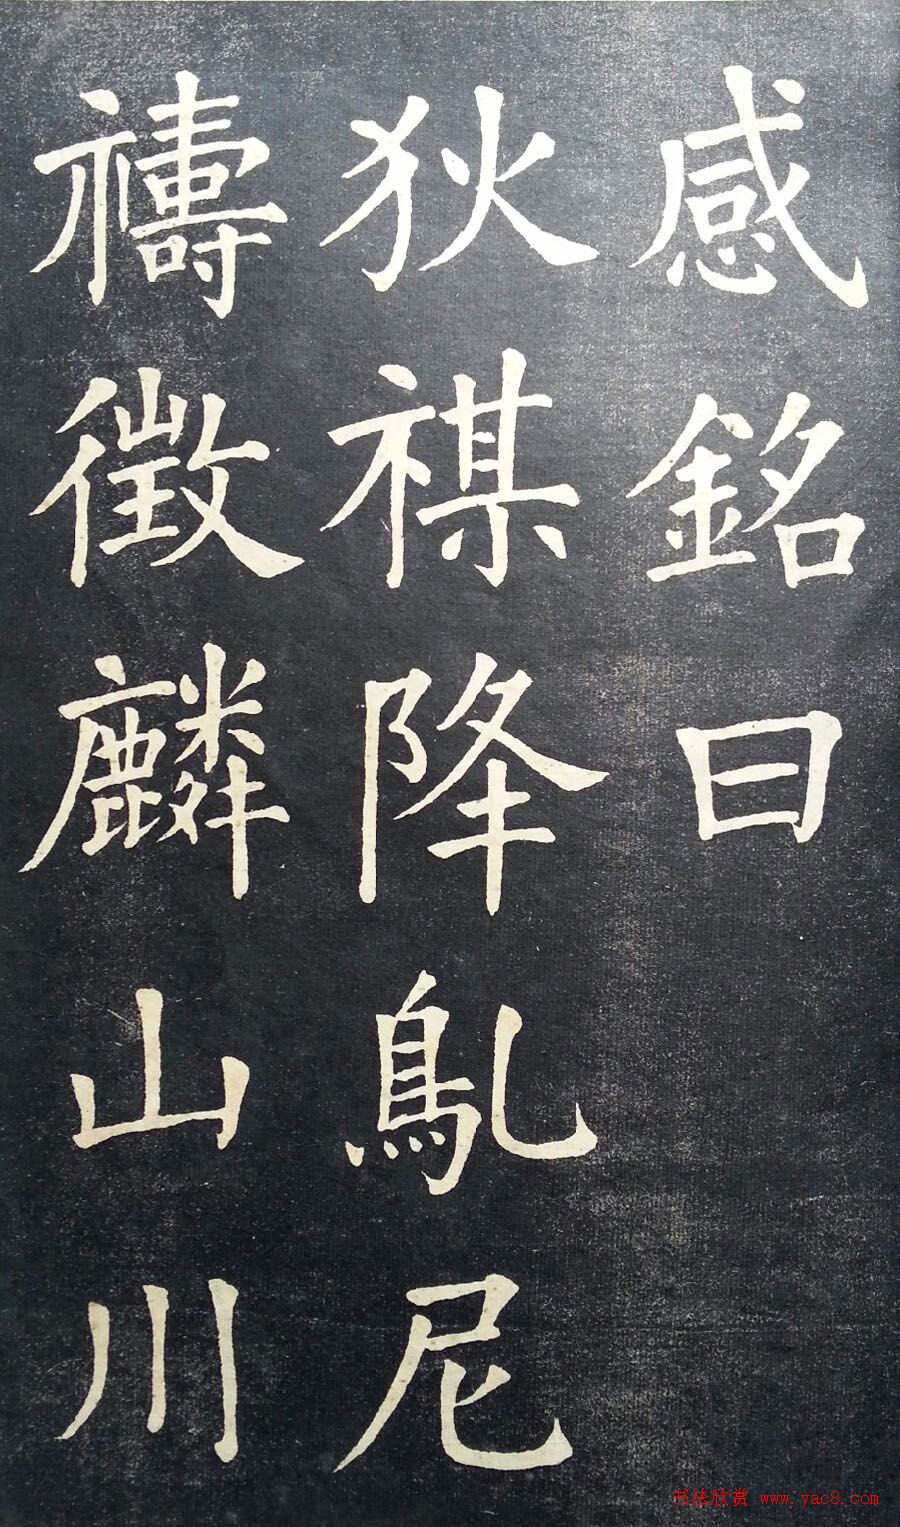 感銘曰
狄禖降鳦尼
禱徵麟山川
书法欣赏 www.yac8.com